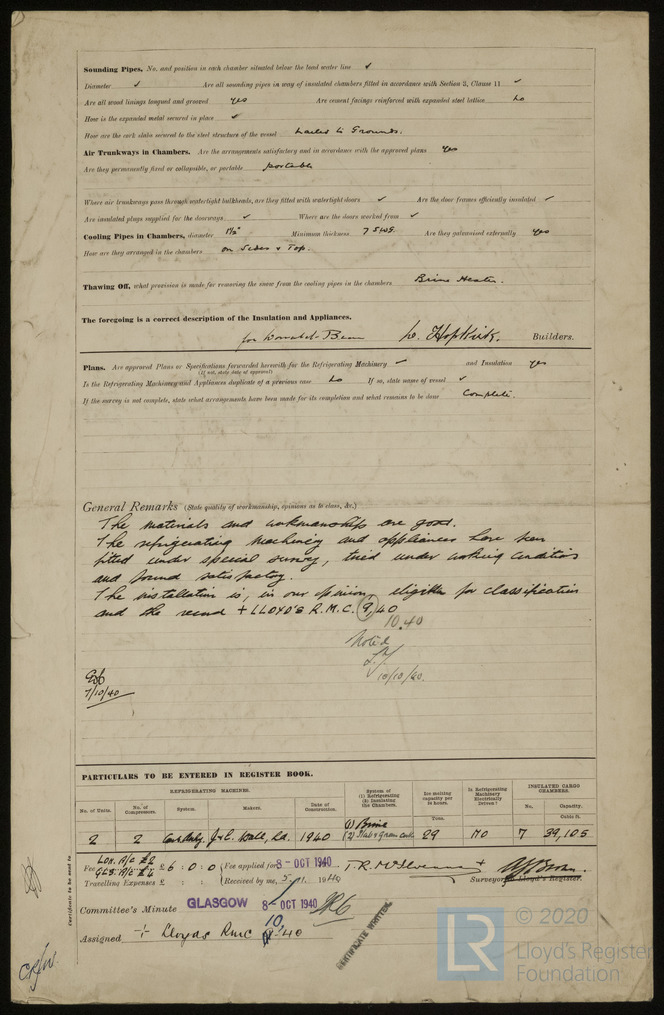 Sounding Pipes, No. and position in each chamber situated below the load water line ✓
Diameter ✓ Are all sounding pipes in way of insulated chambers fitted in accordance with Section 3, Clause 11 ✓
Are all wood linings tongued and grooved yes Are cement facings reinforced with expanded steel lattice no
How is the expanded metal secured in place ✓
How are the cork slabs secured to the steel structure of the vessel Nailed to Grounds.
Air Trunkways in Chambers. Are the arrangements satisfactory and in accordance with the approved plans yes
Are they permanently fixed or collapsible, or portable portable
Where air trunkways pass through watertight bulkheads, are they fitted with watertight doors ✓ Are the door frames efficiently insulated ✓
Are insulated plugs supplied for the doorways ✓ Where are the doors worked from ✓
Cooling Pipes in Chambers, diameter 1½" Minimum thickness 7 SWG. Are they galvanised externally yes
How are they arranged in the chambers on Sides & Top.
Thawing Off, what provision is made for removing the snow from the cooling pipes in the chambers Brine Heater.
The foregoing is a correct description of the Insulation and Appliances.
for W. Hopkirk. Builders.
Plans. Are approved Plans or Specifications forwarded herewith for the Refrigerating Machinery ✓ and Insulation yes
(If not, state date of approval)
Is the Refrigerating Machinery and Appliances duplicate of a previous case no If so, state name of vessel ✓
If the survey is not complete, state what arrangements have been made for its completion and what remains to be done Complete.
General Remarks (State quality of workmanship, opinions as to class, &c.)
The materials and workmanship are good.
The refrigerating machinery and appliances have been
fitted under special survey, tried under working conditions
and found satisfactory.
The installation is, in our opinion, eligible for classification
and the record + LLOYD'S R.M.C. 9,40
10.40
Noted
10/10/40.
7/10/40
PARTICULARS TO BE ENTERED IN REGISTER BOOK.
REFRIGERATING MACHINES.
System of (1) Refrigerating (2) Insulating the Chambers.
Ice melting capacity per 24 hours.
Is Refrigerating Machinery Electrically Driven?
INSULATED CARGO CHAMBERS.
No. of Units. No. of Compressors. System. Makers. Date of Construction. Tons. No. Capacity. Cubic ft.
(1) Brine
2 2 J & E. Hall, Ld. 1940 (2) Slab & Gran Cork 29 NO 7 39,105
LON. A/C £2
Fee GLS. A/C £4 £ 6 : 0 : 0 Fee applied for 8 - OCT 1940 T. R.
Travelling Expenses £ : : Received by me, 19 40 Surveyor to Lloyd's Register.
Committee's Minute GLASGOW 8 - OCT 1940
10
Assigned + Lloyds RMC 9.40
CERTIFICATE WRITTEN.
Certificate to be sent to
© 2020
LR
Lloyd's Register
Foundation